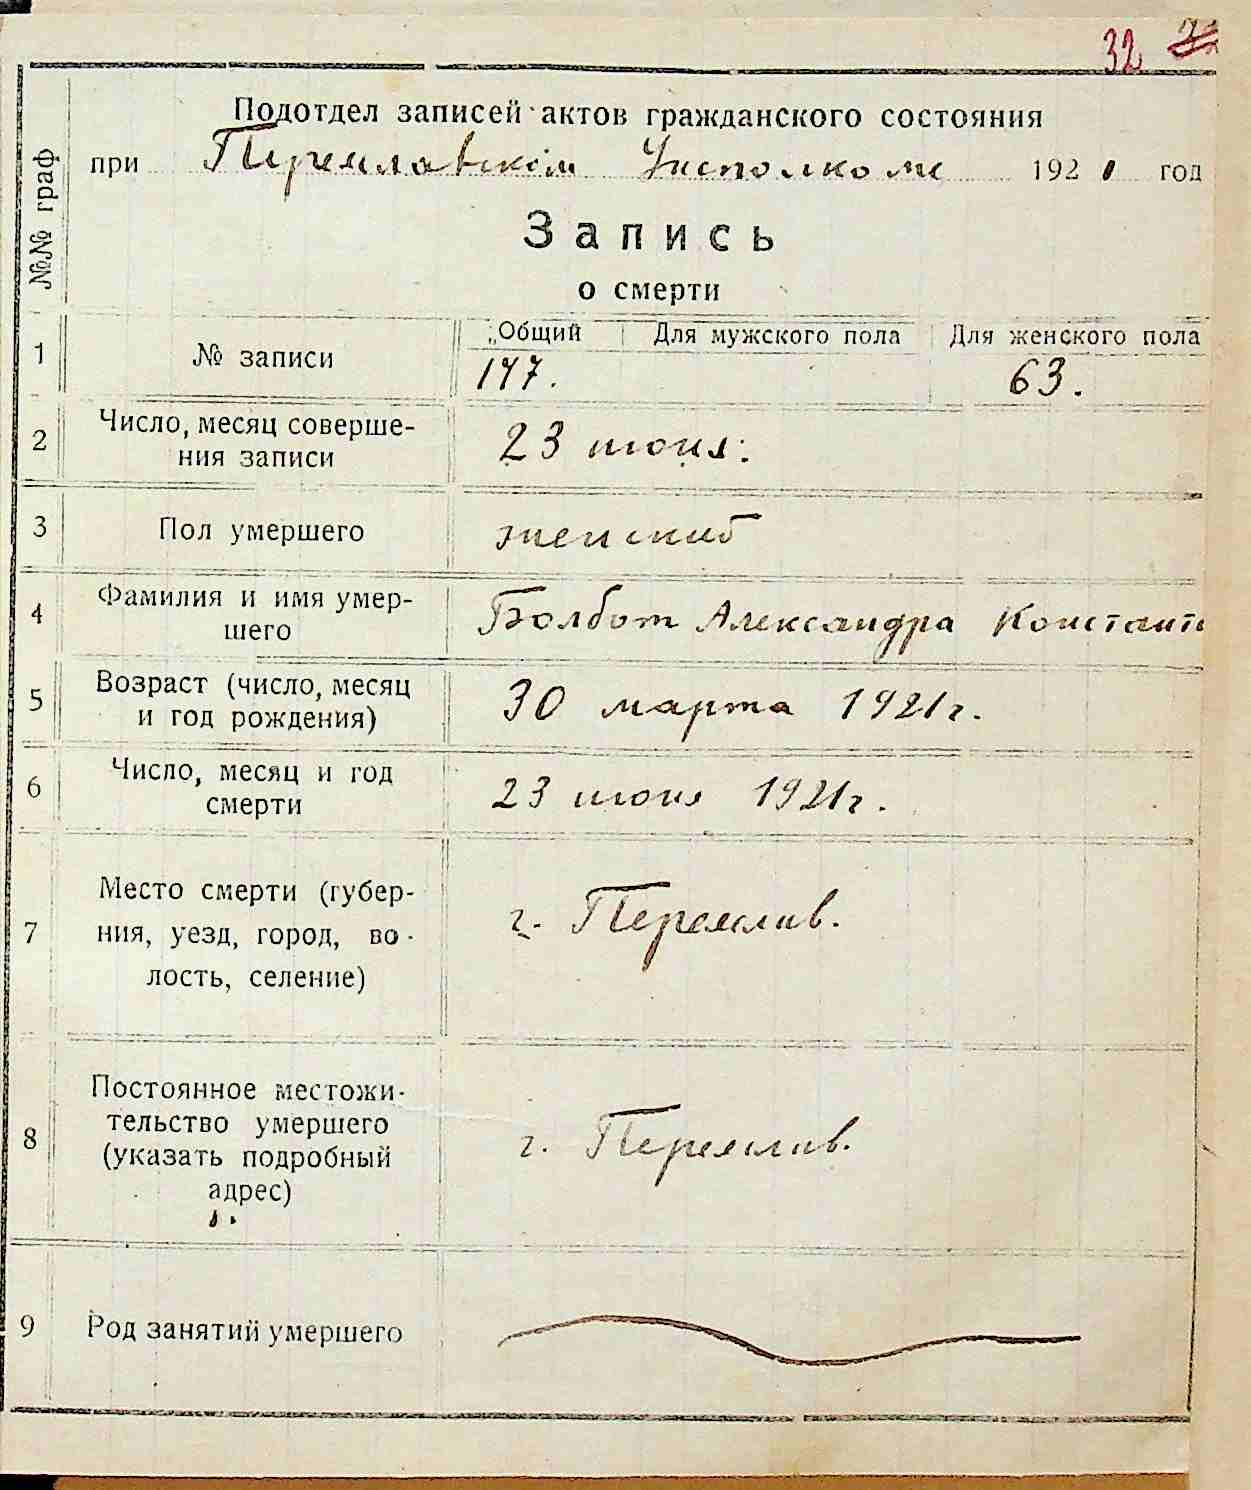 32
Подотдел записей актов гражданского состояния
при Перемлавском Уисполкоме 1921 год
№№ граф
Запись
о смерти
1 № записи Общий Для мужского пола Для женского пола
177. 63.
2 Число, месяц соверше-
ния записи 23 июня.
3 Пол умершего женский
4 Фамилия и имя умер-
шего Болбот Александра Констант
5 Возраст (число, месяц
и год рождения) 30 марта 1921 г.
6 Число, месяц и год
смерти 23 июня 1921 г.
7 Место смерти (губер-
ния, уезд, город, во-
лость, селение) г. Перемлав.
8 Постоянное местожи-
тельство умершего
(указать подробный
адрес) г. Перемлав.
9 Род занятий умершего